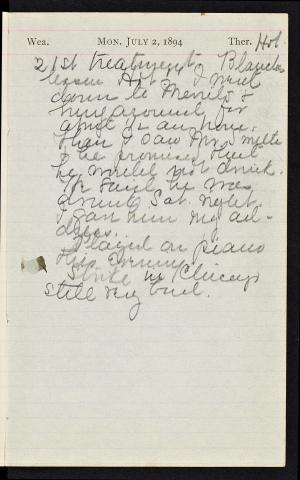 Wea. Mon. July 2, 1894 Ther. Hot
21st treatment, Blanches
lesson Hot. I went
down to Merrills &
hung around for
almost an hour.
Then I saw Mr. Smith
& he promised that
he would not drink.
He said he was
drunk Sat. night.
I gave him my ad-
dress.
Played on piano
this evening.
Strike in Chicago
still very bad.